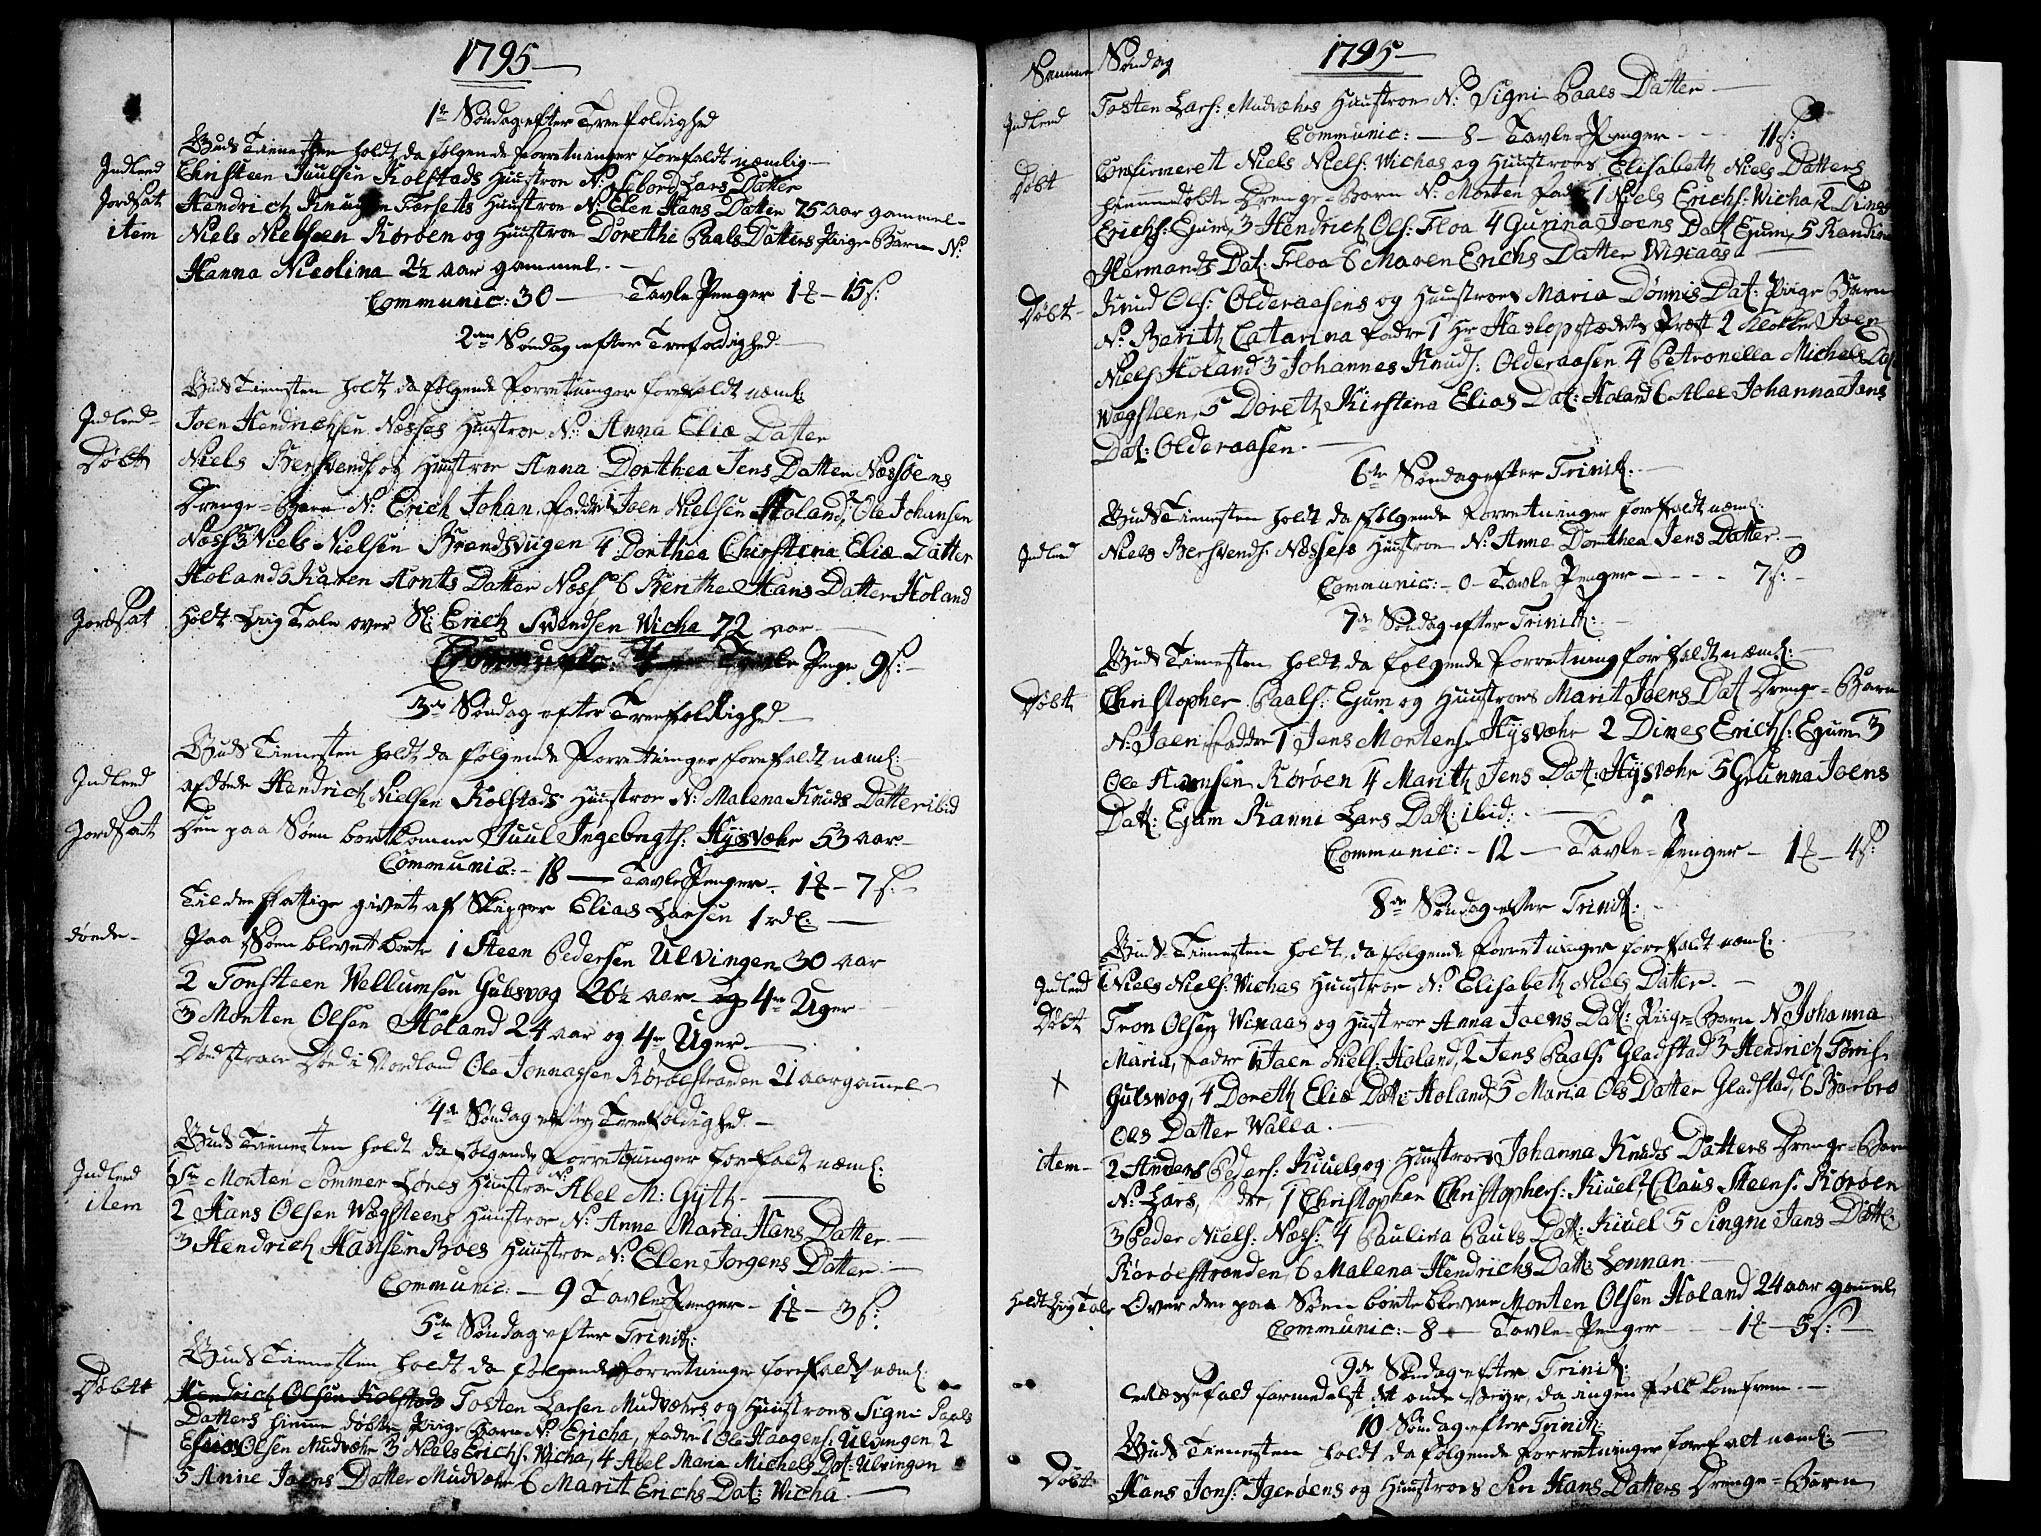 1795
1te Søndag efter Trefoldighed
Guds Tienesten holdt da følgende forretninger forefaldt næmlig
Indlend Christeen Juulsen Kolstads Huustroe N: Sebord Lars Datter
Jordsat Hendrich Knudsen Færsets Huustroe N: Elen Hans Datter 75 aar gammel
item Niels Nielseen Korøen og Huustroe Dorethe Paals Datters Piige-Barn N:
Hanna Nicolina 2½ aar gammel.
Communic: 30 — Tavle Penger 1 — 15 s:
2den Søndag efter Trefoldighed
Guds Tienesten holdt da følgende forretninger forefaldt næml:
Indlend Joen Hendrichsen Næsses Huustroe N: Anna Eliæ Datter
Døbt Niels Berhends: og Huustroe Anna Dorthea Jens Datter Næssøens
Drenge-Barn N: Erich Johan, faddre 1 Joen Nielsen Holand, 2 Ole Johansen
Næss 3 Niels Nielsen Brendsviigen 4 Dorthea Chirstina Eliæ Datter
Holand 5 Karen Honts Datter Næss 6 Berithe Hans Datter Holand
Jordsat Holdt Liig Tale over Sl: Erich Svendsen Wicha 72 aar
Communic: Tavle Penge 9 s:
3die Søndag efter Trefoldighed
Guds Tienesten holdt da følgende Forretninger forefaldt næml:
Indlend afdøde Hendrich Nielsen Kolstads Huustroe N: Malena Knuds Datter ibid
Jordsat Den paa Søen bortkomne Juul Ingebrigts: Hysvæhr 53 aar
Communic: - 18 — Tavle Penger - 1 — 7 s:
Til de fattige givet af Skipper Elias Larsen 1 rdl:
døede Paa Søen blevet borte 1 Steen Pedersen Ulvingen 30 aar
2 Torsteen Wellumsen Gulsvog 26½ aar og 4re Uger
3 Morten Olsen Holand 24 aar og 4re Uger
Død i Nordland Ole Jonnassen Korøestranden 21 aar gammel
4de Søndag efter Trefoldighed
Guds Tienesten holdt da følgende Forretninger forefaldt næml:
Indlend 1 Sr Morten Sommer Lønes Huustroe N: Abel M: Gyth
item 2 Hans Olsen Wægsteens Huustroe N: Anne Maria Hans Datter
3 Hendrich Hansen Boes Huustroe N: Elen Jorgens Datter
Communic: — 9 Tavle Penger — 1 — 3 s:
5te Søndag efter Trinit:
Guds Tienesten holdt da følgende forretninger forefaldt næml:
Døbt Hendrich Olsen Kolstads Tosten Larsen Mudvæhrs og Huustroes Signi Paals
Datters hiemme døbte Piige Barn N: Ericha, fadre 1 Ole Haagens: Ulvingen 2
Olsen Mudvæhr 3 Niels Erichs: Wicha, 4 Abel Maria Michels Dat: Ulvingen
5 Anne Joens Datter Mudvæhr 6 Marit Erichs Dat: Wicha
1795
Samme Søndag
Indlend Tosten Lars: Mudvæhrs Huustroe N: Signi Paals Datter
Communic: — 8 — Tavle Penger - - 11 s:
Døbt Confirmerett Niels Niels: Wichas og Huustroes Elisabeth Niels Datters
hiemmedøbte Drenge-Barn N: Morten fad: 1 Niels Erichs: Wicha, 2 Dines
Erichs: Ejum, 3 Hendrich Ols: Floa 4 Gurina Joens Dat: Ejum, 5 Randina
Hermands Dat: Floa 6 Maren Erichs Datter Wixaas
Døbt Knud Ols: Olderaasens og Huustroes Maria Dønnis Dat: Piige Barn
N: Barith Catarina fadre 1 Hr Haslop stædets Præst 2 Klokker Joen
Niels: Holand 3 Johannes Knuds: Olderaasen 4 Petronella Michels Dat:
Wægsteen, 5 Doreth Kirstina Elias Dat: Holand 6 Abel Johanna Jens
Dat: Olderaasen.
6te Søndag efter Trinit:
Guds Tienesten holdt da følgende forretninger forefaldt næml:
Indlend Niels Berhends: Næsses Huustroe N: Anne Dorthea Jens Datter
Communic: - 0 - Tavle Penger - - - - 7 s:
7de Søndag efter Trinit:
Guds Tienesten holdt da følgende forretning forefaldt næml:
Døbt Christopher Paals: Ejum og Huustroes Marit Joens Dat: Drenge-Barn
N: Joen, faddre 1 Jens Mortens: Hysvæhr 2 Dines Erichs: Ejum 3
Ole Hansen Korøen 4 Marith Jens Dat: Hysvæhr 5 Grunna Joens
Dat: Ejum Ranni Lars Dat: ibid:
Communic: - 12 — Tavle-Penger — 1 — 4 s:
8de Søndag efter Trinit:
Guds Tienesten holdt, da følgende forretninger forefaldt næml:
Indlend 1 Niels Niels: Wichas Huustroe N: Elisabeth Niels Datter.
Døbt Tron Olsen Wixaas og Huustroe Anna Joens Dat: Piige-Barn N: Johanna
Maria, fadre 1 Joen Niels: Holand, 2 Jens Paals: Gladstad 3 Hendrich Tørris:
Gulsvog, 4 Doreth Eliæ Dat: Holand, 5 Maria Ols Datter Gladstad, 6 Barbro
Ols Datter Walla.
item 2 Anders Peders: Kiuels og Huustroes Johanna Knuds Datters Drenge-Barn
N: Lars, fadre, 1 Christopher Christophers: Kiuel 2 Claus Steens: Korøen
3 Peder Niels: Næss: 4 Paulina Pauls Dat: Kiuel 5 Singni Jans Datt:
Korøestranden, 6 Malena Hendrichs Dat: Lonnan
Holdt Liig Tale Over den paa Søen borteblevne Morten Olsen Holand 24 aar gammel
Communic: - 8 — Tavle-Penger — 1 — 5 s:
9de Søndag efter Trinit:
Messefald formedelst et onde Veyr, da ingen folk kom frem.
10 Søndag efter Trinit:
Guds Tienesten holdt da følgende forretninger forefalt næml:
Døbt Hans Jons: Igerøens og Huustroes Siri Hans Datters Drenge-Barn